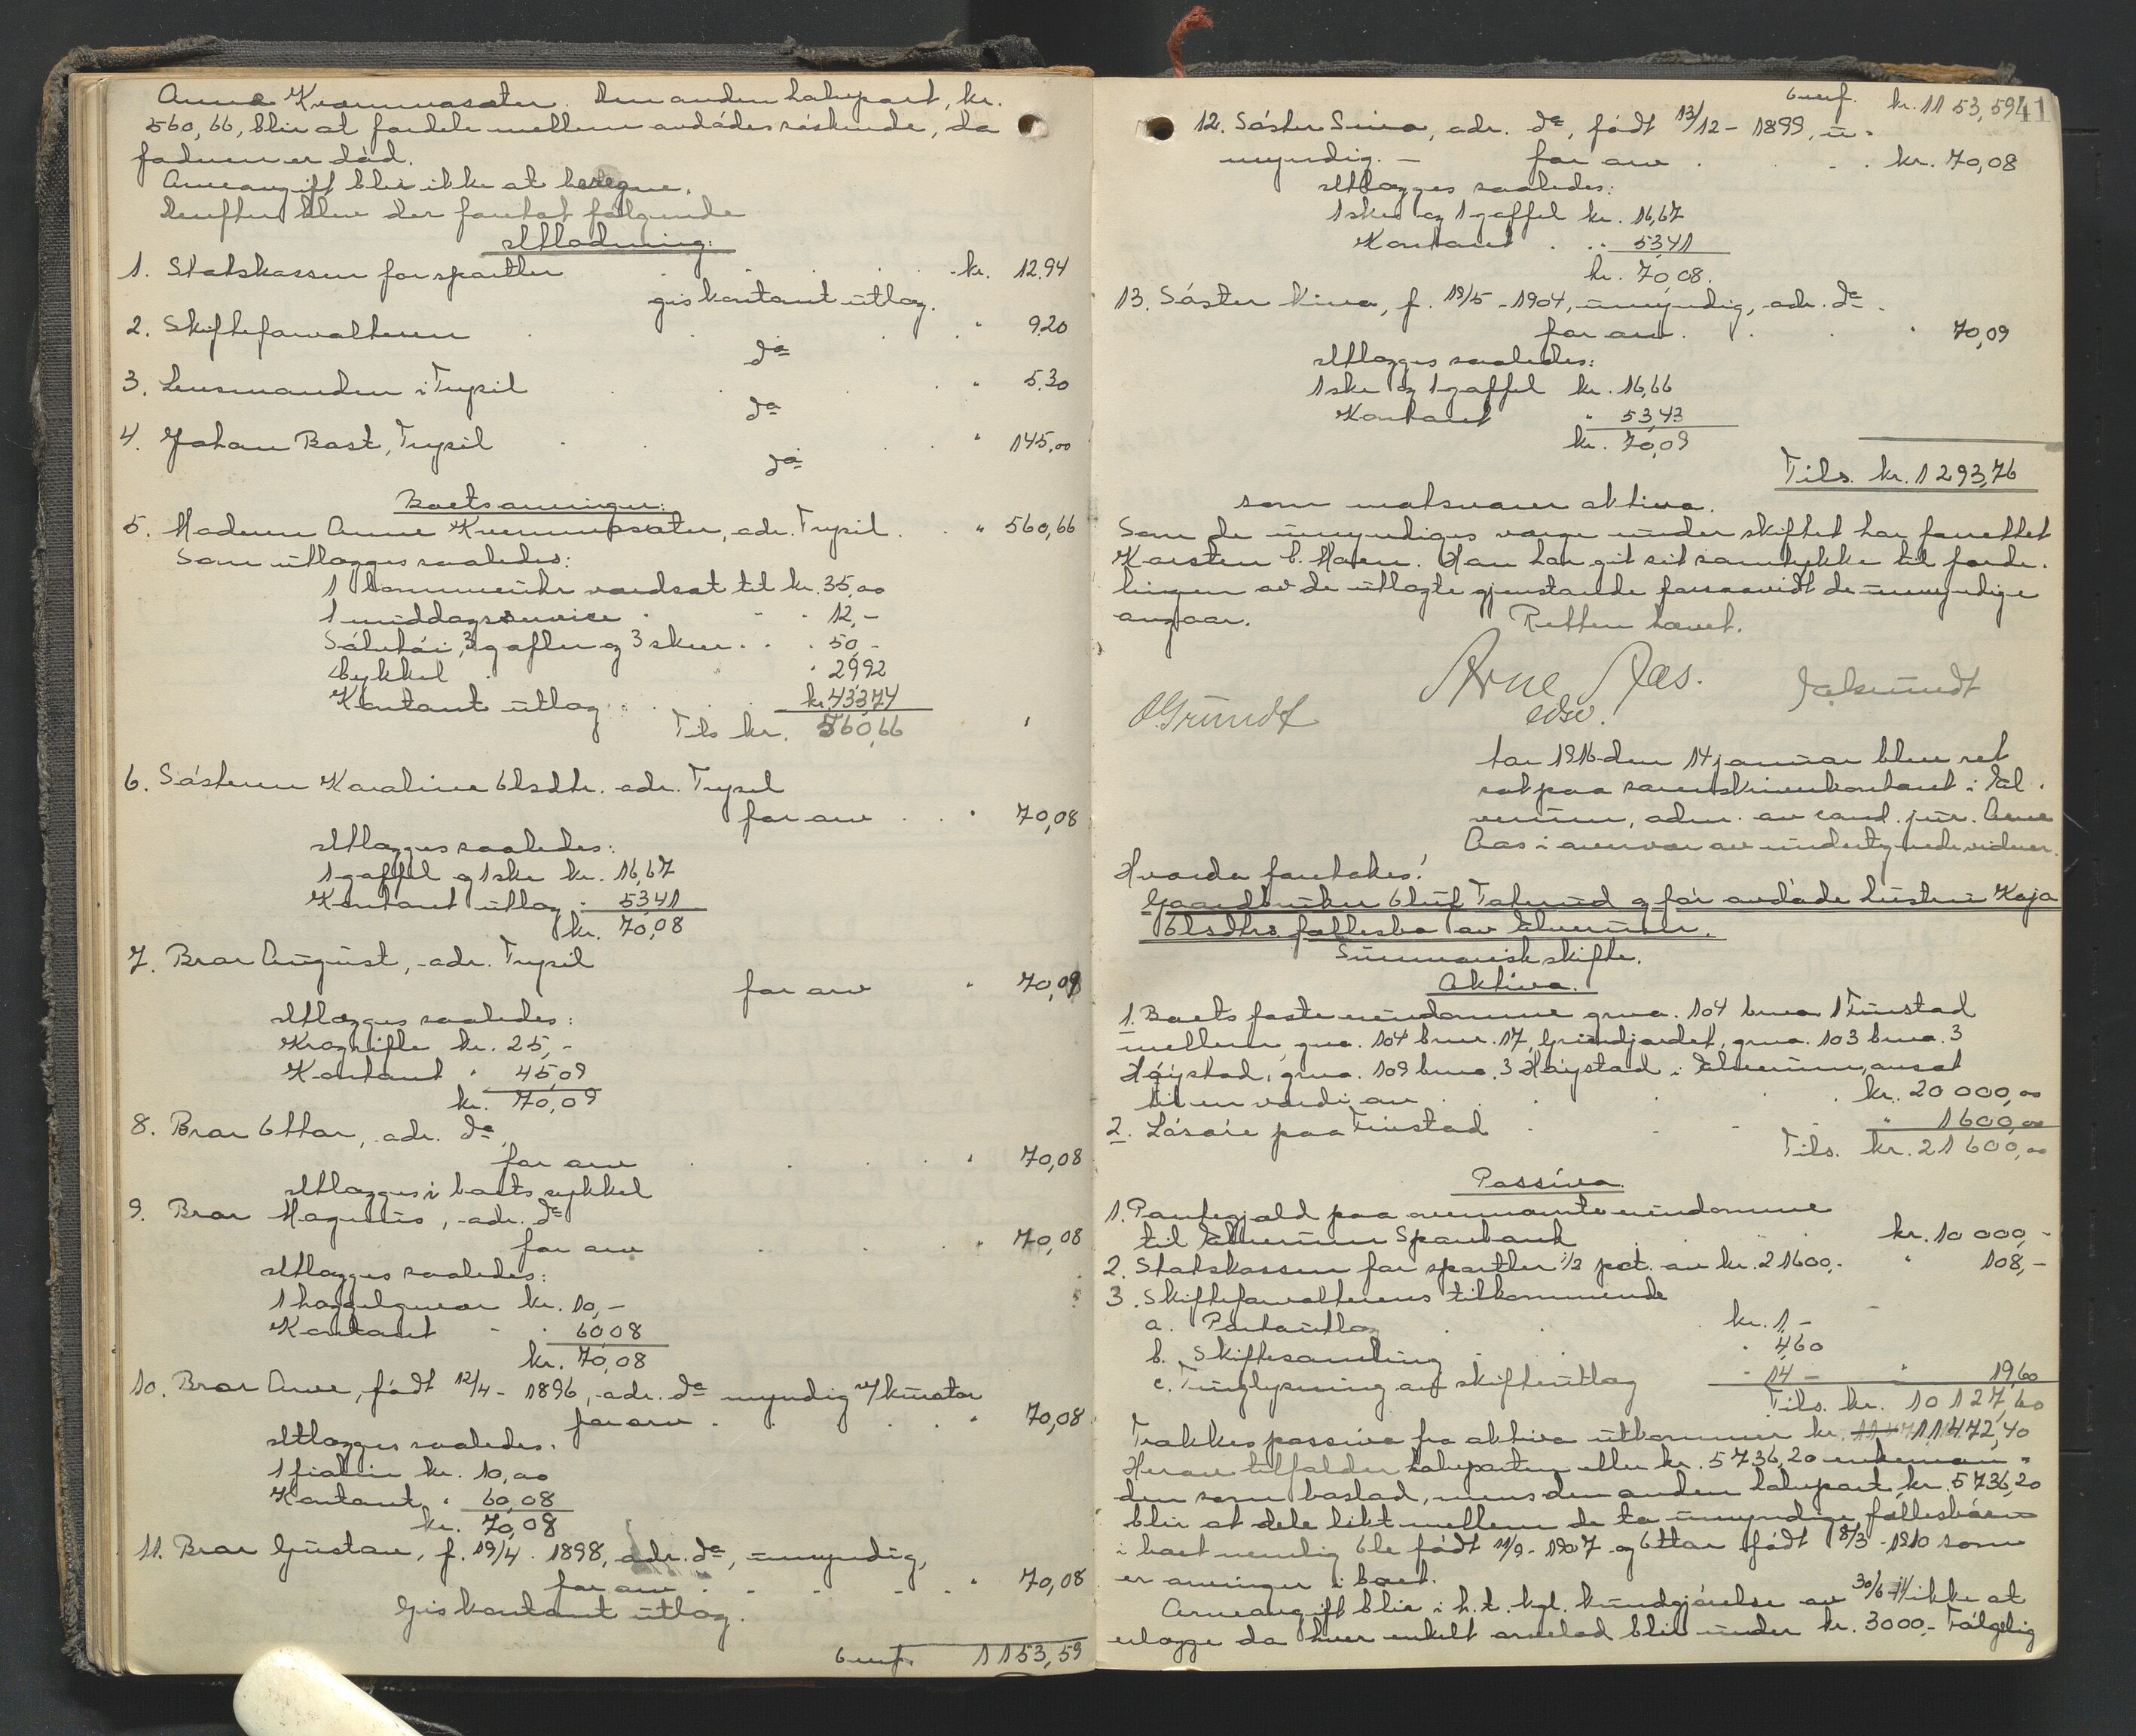 Anne Kvemmosæter. Den anden halvpart, kr.
560,66, blir at fordele mellem avdødes søskende, da
faderen er død.
Arveavgift blir ikke at beregne.
Derefter blev der foretat følgende
Utlodning:
1. Statskassen for sportler kr. 12.94
gis kontant utlæg.
2. Skifteforvalteren " 9.20
do
3. Lensmanden i Trysil " 5.30
do
4. Johan Bast, Trysil " 145,00
do
Boets arvinger:
5. Moderen Anne Kvemmosæter, adr. Trysil. " 560,66
Som utlægges saaledes:
1 lommeuhr værdsat til kr. 35,00
1 middagsservice " 12,-
Sølvtøi, 3 gafler og 3 skeer " 50,-
Cykkel " 29,92
Kontant utlæg kr. 433,74
Tils kr. 560,66
6. Søsteren Karoline Olsdtr. adr. Trysil
for arv " 70,08
Utlægges saaledes:
1 gaffel og 1 ske kr. 16,67
Kontant utlæg " 53,41
kr. 70,08
7. Bror August, adr. Trysil
for arv " 70,09
Utlægges saaledes:
Kragrifle kr. 25,-
Kontant " 45,09
kr. 70,09
8. Bror Ottar, adr. do
for arv " 70,08
Utlægges i boets sykkel
9. Bror Magnus, adr. do
for arv " 70,08
Utlægges saaledes:
1 haggelgevær kr. 10,-
Kontant " 60,08
kr. 70,08
10. Bror Arve, født 12/4 - 1896, adr. do myndig m/kurator
for arv " 70,08
Utlægges saaledes.
1 fiolin kr. 10,00
Kontant " 60,08
kr. 70,08
11. Bror Gustav, f. 19/4. 1898, adr. do, umyndig,
for arv " 70,08
Gis kontant utlæg.
Overf. 1153,59
Overf. kr. 1153,59 41
12. Søster Signa, adr. do, født 13/12 - 1899, u-
myndig. - for arv kr. 70,08
Utlægges saaledes:
1 ske og 1 gaffel kr. 16,67
Kontant " 53,41
kr. 70,08.
13. Søster Kina, f. 19/5 - 1904, umyndig, adr. do.
for arv " 70,09
Utlægges saaledes:
1 ske og 1 gaffel kr. 16,66
Kontant " 53,43
kr. 70,09
Tils. kr. 1293,76
som motsvarer aktiva.
Som de umyndiges verge under skiftet har forrettet
Karsten O. Moren. Han har git sit samtykke til forde-
lingen av de utlagte gjenstande forsaavidt de umyndige
angaar. Retten hævet.
Arne Aas.
edsv.
O Grundt
Aar 1916 den 14 januar blev ret
sat paa sorenskriverkontoret i El-
verum, adm. av cand. jur. Arne
Aas i overvær av undertegnede vidner.
Hvorda foretokes:
Gaardbruker Oluf Taksrud og før avdøde hustru Kaja
Olsdtrs fællesbo av Elverum.
Summarisk skifte.
Aktiva.
1. Boets faste eiendomme gno. 104 bno 1 Finstad
mellem, gno. 104 bnr. 17, Grindjordet, gno. 103 bno. 3
Høystad, gno. 109 bno. 3 Høystad i Elverum, ansat
til en værdi av kr. 20 000,00
2. Løsøre paa Finstad " 1600,00
Tils. kr. 21 600,00
Passiva.
1. Pantegjæld paa ovennævnte eiendomme
til Elverum Sparebank kr. 10 000,-
2. Statskassen for sportler 1/2 pct. av kr. 21600,- " 108,-
3. Skifteforvalterens tilkommende
a. Portoutlæg kr. 1,-
b. Skiftesamling " 4,60
c. Tinglysning av skifteutlæg " 14 - " 19,60
Tils. kr. 10 127,60
Trækkes passiva fra aktiva utkommer kr. 11472,40
Herav tilfalder halvparten eller kr. 5736,20 enkeman-
den som boslod, mens den anden halvpart kr. 5736,20
blir at dele likt mellem de to umyndige fællesbørn
i boet nemlig Ole født 11/9 - 1907 og Ottar født 8/3 - 1910 som
er arvinger i boet.
Arveavgift blir i h.t. kgl. kundgjørelse av 30/6 11 ikke at
erlægge da hver enkelt arvelod blir under kr. 3000,- Følgelig